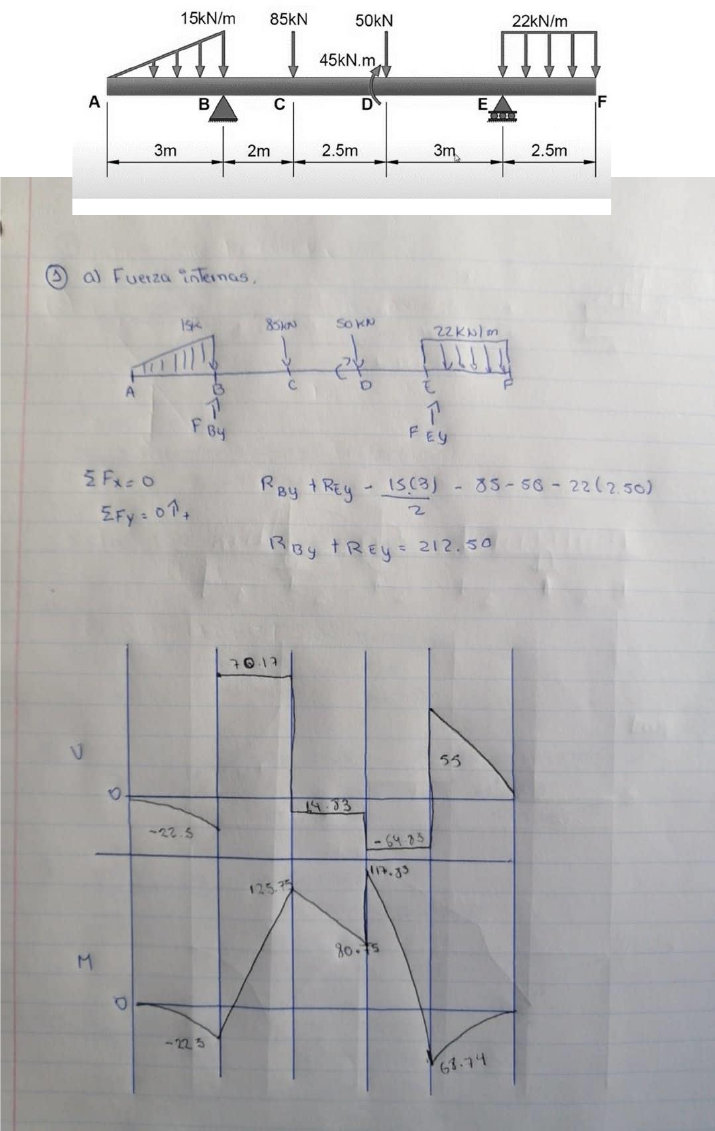 15kN/m 85kN 50kN 22kN/m
45kN.m
A B C D E F
3m 2m 2.5m 3m 2.5m
① a) Fuerza internas.
15k 85kN 50KN 22KN/m
A B C D E F
F By F Ey
ΣFx = 0 R By + R Ey - 15(3)/2 - 85 - 50 - 22(2.50)
ΣFy = 0 ↑+
R By + R Ey = 212.50
70.17
V
55
0
14.83
-22.5
-64.83
117.83
125.75
80.75
M
0
-22.5
68.74